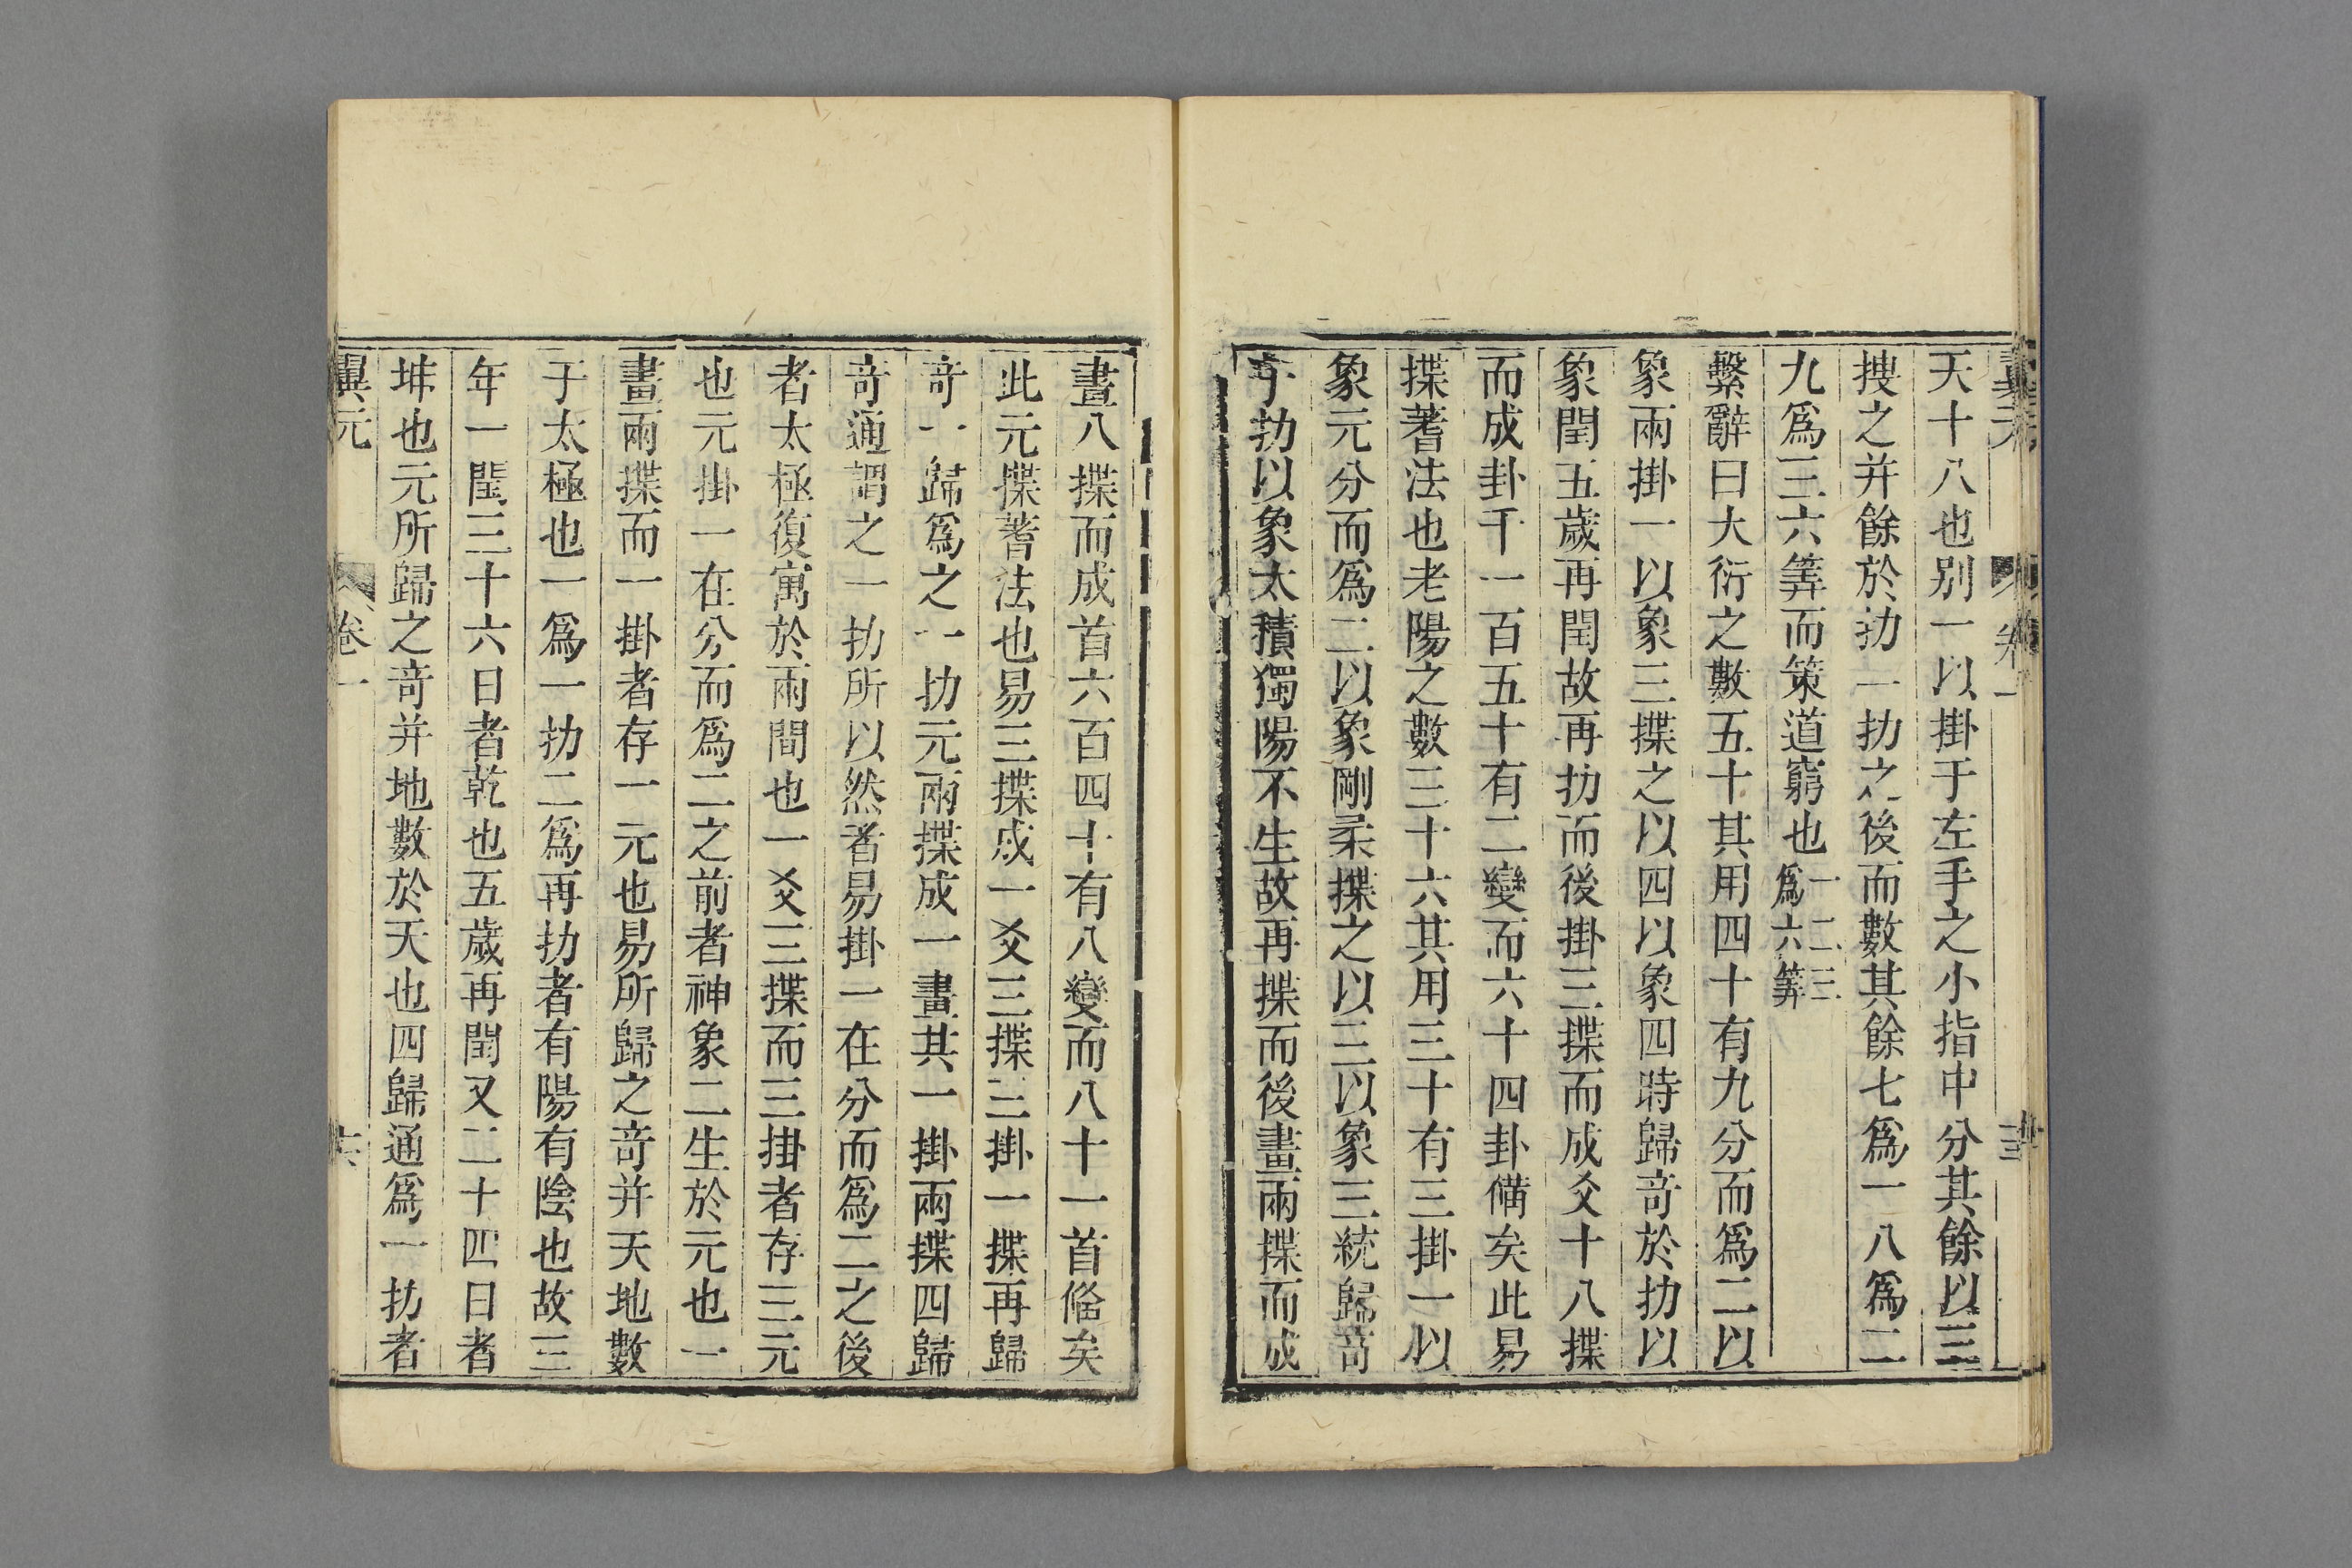 翼元
卷一
天十八也别一以掛于左手之小指中分其餘以三
搜之并餘於扐一扐之後而數其餘七爲一八爲二
九爲三六筭而策道窮也一二三爲六筭
繫辭曰大衍之數五十其用四十有九分而爲二以
象兩掛一以象三揲之以四以象四時歸竒於扐以
象閏五歲再閏故再扐而後掛三揲而成爻十八揲
而成卦千一百五十有二變而六十四卦備矣此易
揲蓍法也老陽之數三十六其用三十有三掛一以
象元分而爲二以象剛柔揲之以三以象三統歸竒
于扐以象太積獨陽不生故再揲而後畫兩揲而成
畫八揲而成首六百四十有八變而八十一首備矣
此元揲蓍法也易三揲成一爻三揲三掛一揲再歸
竒一歸爲之一扐元兩揲成一畫其一掛兩揲四歸
竒通謂之一扐所以然者易掛一在分而爲二之後
者太極復寓於兩間也一爻三揲而三掛者存三元
也元掛一在分而爲二之前者神象二生於元也一
畫兩揲而一掛者存一元也易所歸之竒并天地數
于太極也一爲一扐二爲再扐者有陽有陰也故三
年一閏三十六日者乾也五歲再閏又二十四日者
坤也元所歸之竒并地數於天也四歸通爲一扐者
翼元
卷一